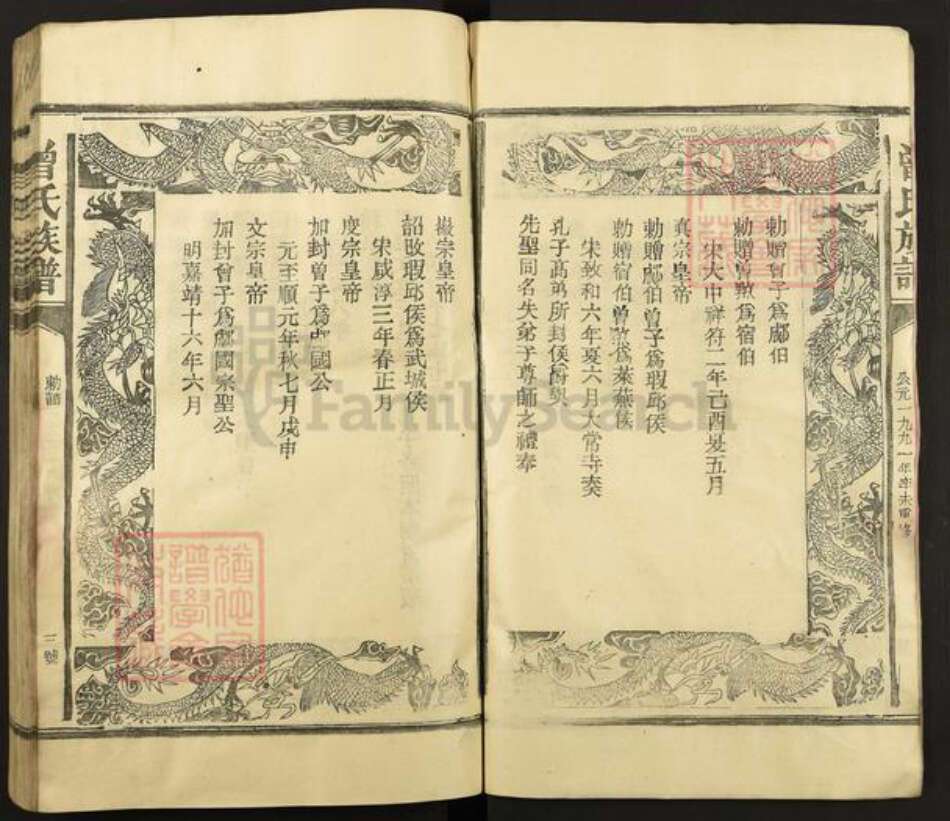 公元一九九一年辛未重修
勅贈曾子爲郕伯
勅贈曾蒧爲宿伯
宋大中祥符二年己酉夏五月
真宗皇帝
勅贈郕伯曾子爲瑕邱侯
勅贈宿伯曾蒧爲萊蕪侯
宋致和六年夏六月大常寺奏
孔子高弟所封侯爵與
先聖同名失弟子尊師之禮奉
徽宗皇帝
詔改瑕邱侯爲武城侯
宋咸淳三年春正月
度宗皇帝
加封曾子爲郕國公
元至順元年秋七月戊申
文宗皇帝
加封曾子爲郕國宗聖公
明嘉靖十六年六月
曾氏族譜
勅諮
三號
FamilySearch